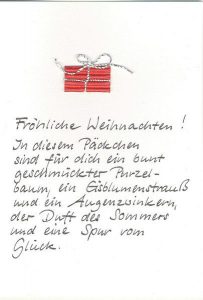 Fröhliche Weihnachten!
In diesem Päckchen
sind für dich ein bunt
geschmückter Purzel-
baum, ein Eisblumenstrauß
und ein Augenzwinkern,
der Duft des Sommers
und eine Spur vom
Glück.